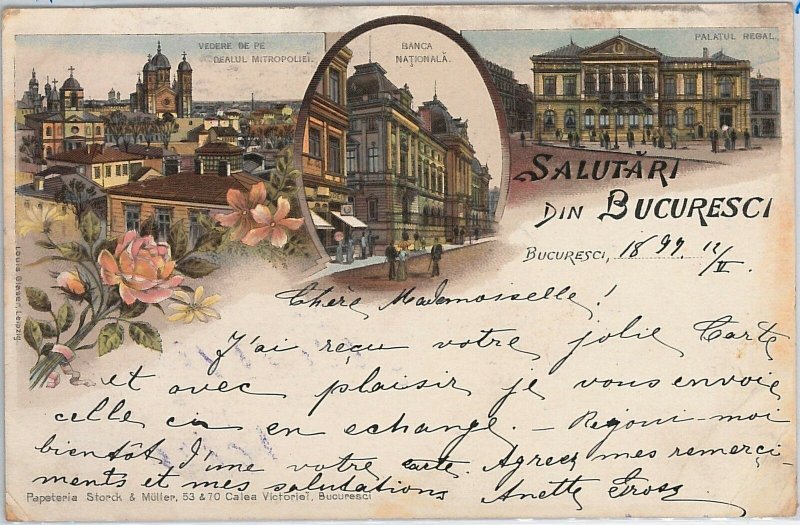 VEDERE DE PE
DEALUL MITROPOLIEI.
BANCA
NAŢIONALĂ.
PALATUL REGAL.
SALUTĂRI
DIN BUCURESCI
BUCURESCI, 1899 12/V.
Chère Mademoiselle!
J'ai reçu votre jolie Carte
et avec plaisir je vous envoie
celle ci en echange. – Rejoui-moi
bientôt d'une votre carte. Agreez mes remerci-
ments et mes salutations Anette Gross
Papeteria Storck & Müller, 53 & 70 Calea Victoriei, Bucuresci
Louis Glaser, Leipzig